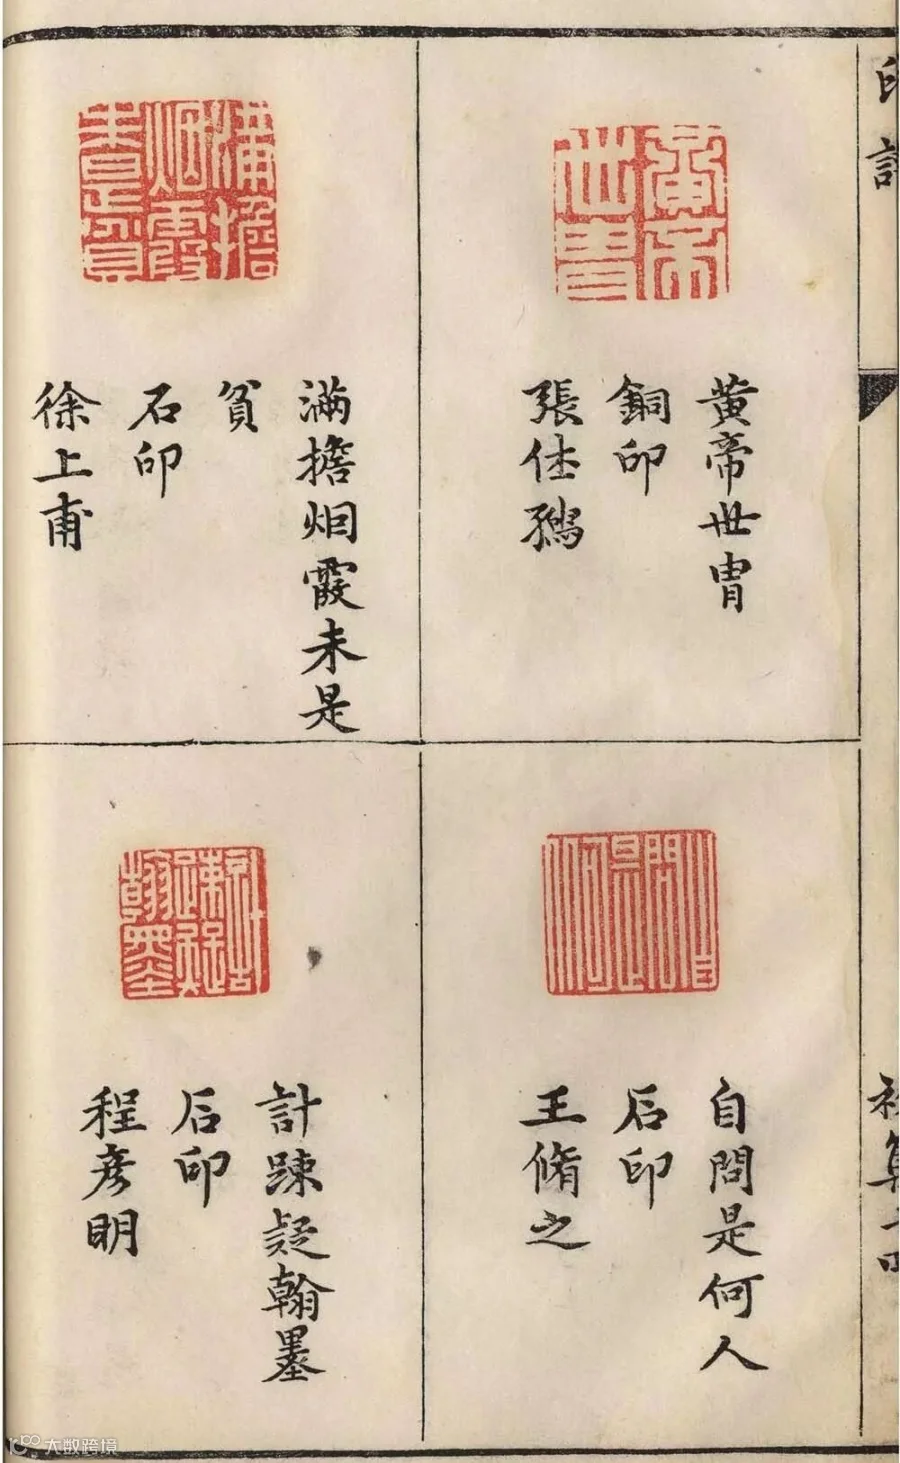 印
黄帝世胄
銅印
張仕鵷
滿擔烟霞未是
貧
石印
徐上甫
自問是何人
石印
王脩之
計疎疑翰墨
石印
程彦明
大数跨境